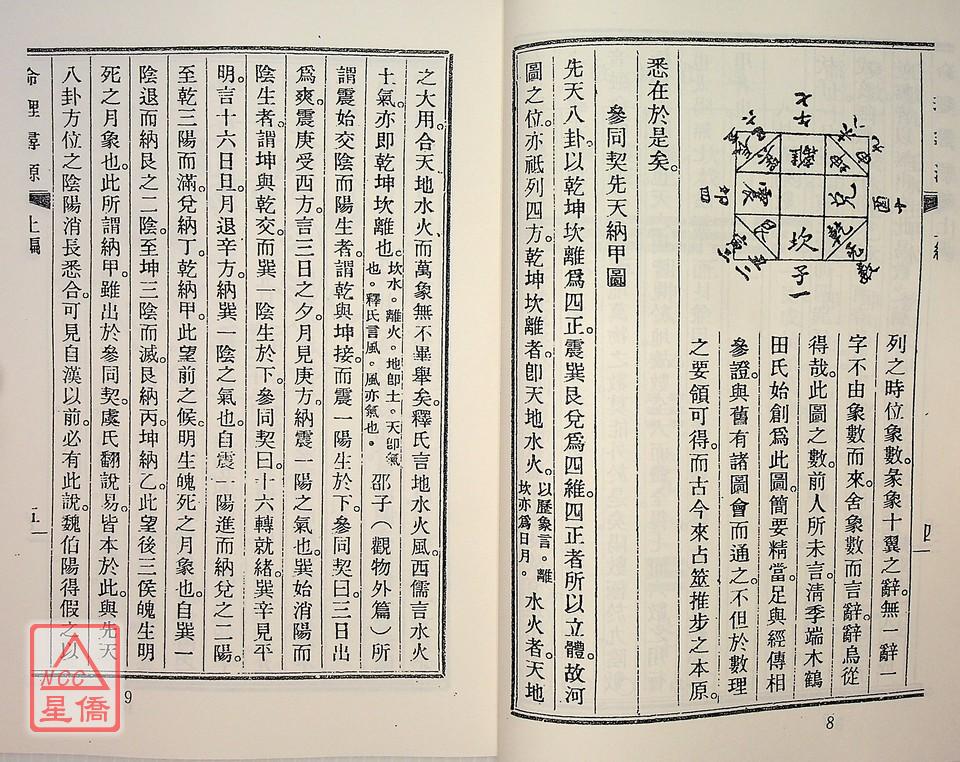 列之時位象數彖象十翼之辭。無一辭一
字不由象數而來。舍象數而言辭。辭烏從
得哉。此圖之數。前人所未言。清季端木鶴
田氏始創爲此圖。簡要精當。足與經傳相
參證。與舊有諸圖會而通之。不但於數理
之要領可得。而古今來占筮推步之本原。
悉在於是矣。
參同契先天納甲圖
先天八卦。以乾坤坎離爲四正。震巽艮兌爲四維。四正者所以立體。故河
圖之位。亦祇列四方。乾坤坎離者。卽天地水火。以歷象言。離坎亦爲日月。水火者。天地
之大用。合天地水火。而萬象無不畢舉矣。釋氏言地水火風。西儒言水火
土氣。亦卽乾坤坎離也。坎水。離火。地卽土。天卽氣也。釋氏言風。風亦氣也。邵子(觀物外篇)所
謂震始交陰而陽生者。謂乾與坤接。而震一陽生於下。參同契曰。三日出
爲爽。震庚受西方。言三日之夕。月見庚方。納震一陽之氣也。巽始消陽而
陰生者。謂坤與乾交。而巽一陰生於下。參同契曰。十六轉就緒。巽辛見平
明。言十六日旦。月退辛方。納巽一陰之氣也。自震一陽進而納兌之二陽。
至乾三陽而滿。兌納丁。乾納甲。此望前之候。明生魄死之月象也。自巽一
陰退而納艮之二陰。至坤三陰而滅。艮納丙。坤納乙。此望後三侯魄生明
死之月象也。此所謂納甲。雖出於參同契。虞氏翻說易。皆本於此。與先天
八卦方位之陰陽消長悉合。可見自漢以前。必有此說。魏伯陽得假之以
離
兌
震
艮
坎
乾
子
一
酉
卯
四
七
8
命理尋原
上編
9
NCC
星僑